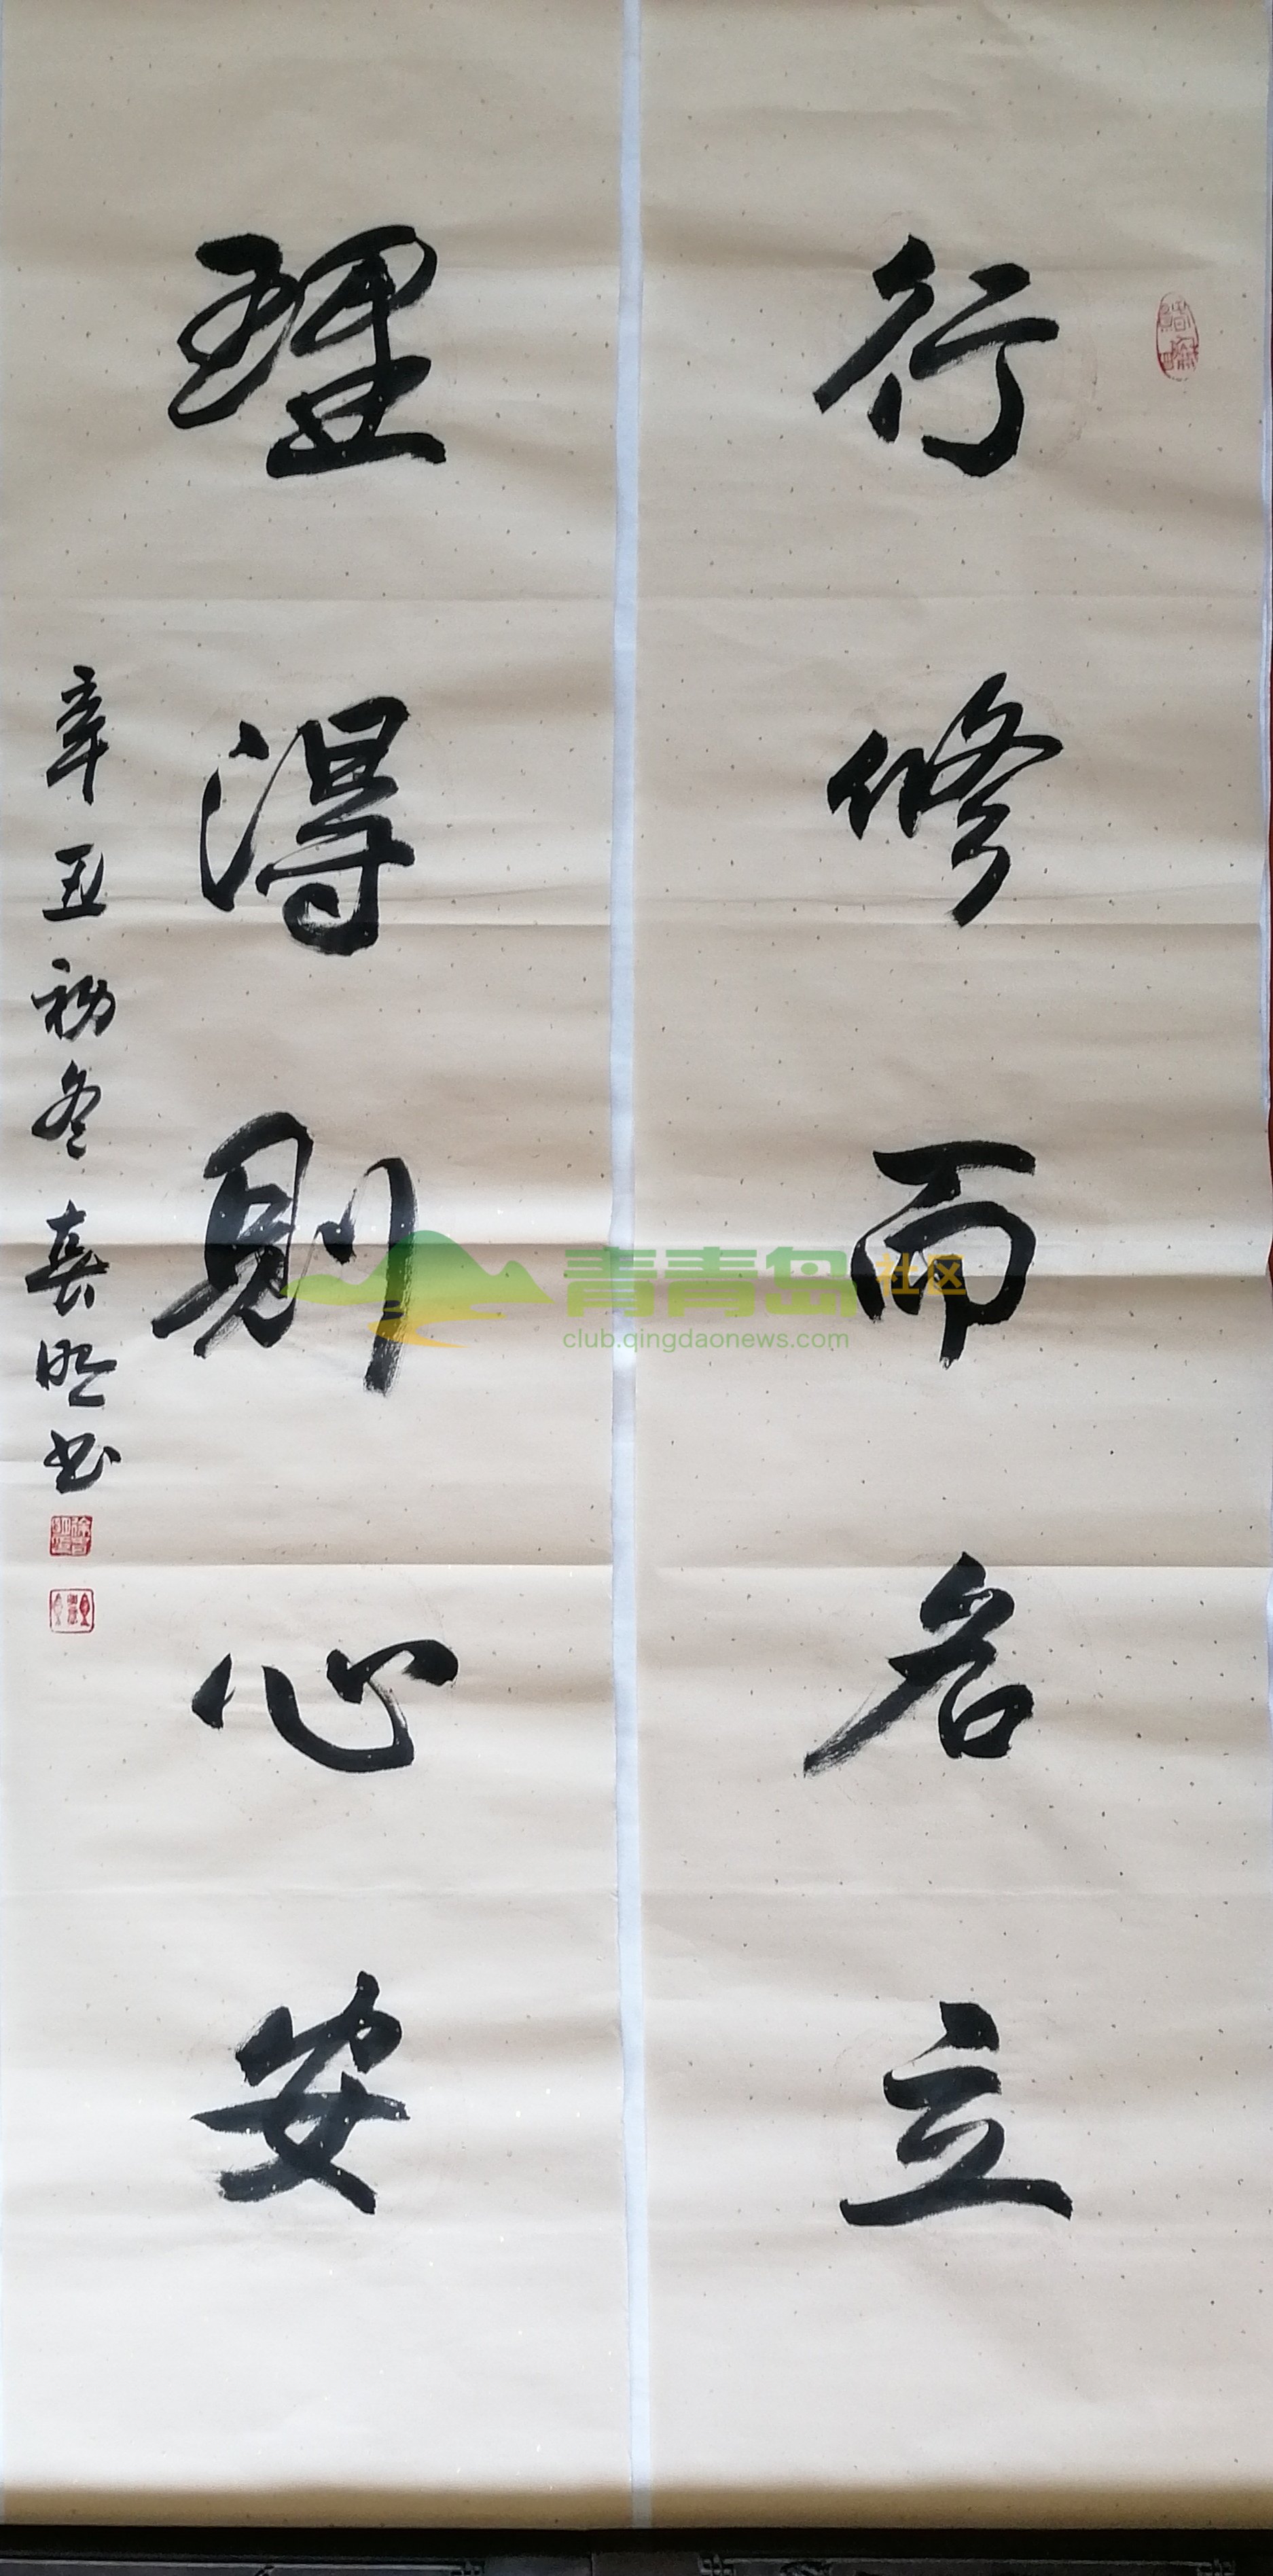 行修而名立
理得則心安
辛丑初冬喜明书
青青岛社区
club.qingdaonews.com